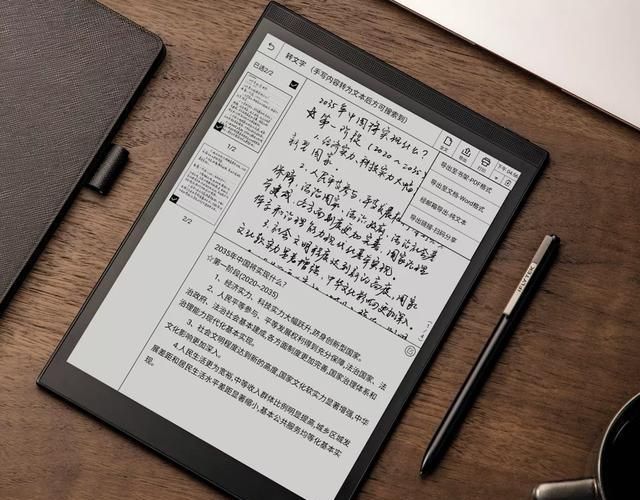 转文字 (手写内容转为文本后方可搜索到)
已选2/2
1/2
2/2
下午 04:56
导出
打印
导出至书架-PDF格式
导出至文档-Word格式
经邮箱导出-纯文本
导出链接-扫码分享
2035年中国将实现什么?
☆第一阶段 (2020~2035)
1. 经济实力、科技实力大幅
新型国家。
2. 人民平等参与、平等发展权
保障, 法治国家、法治政府、法治社会基
本建成, 各方面制度更加完善, 国家治理
体系和治理能力现代化基本实现
3. 社会文明程度达到新的高度, 国家
文化软实力显著增强, 中华文化影响更加深入。
2035年中国将实现什么?
☆第一阶段(2020~2035)
1、经济实力、科技实力大幅跃升,跻身创新型国家。
2、人民平等参与、平等发展权利得到充分保障,法治国家、法
治政府、法治社会基本建成,各方面制度更加完善,国家治理体系和
治理能力现代化基本实现。
3、社会文明程度达到新的高度,国家文化软实力显著增强,中华
文化影响更加深入。
4.人民生活更为宽裕,中等收入群体比例明显提高,城乡区域发
展差距和居民生活水平差距显著缩小,基本公共服务均等化基本实
现。